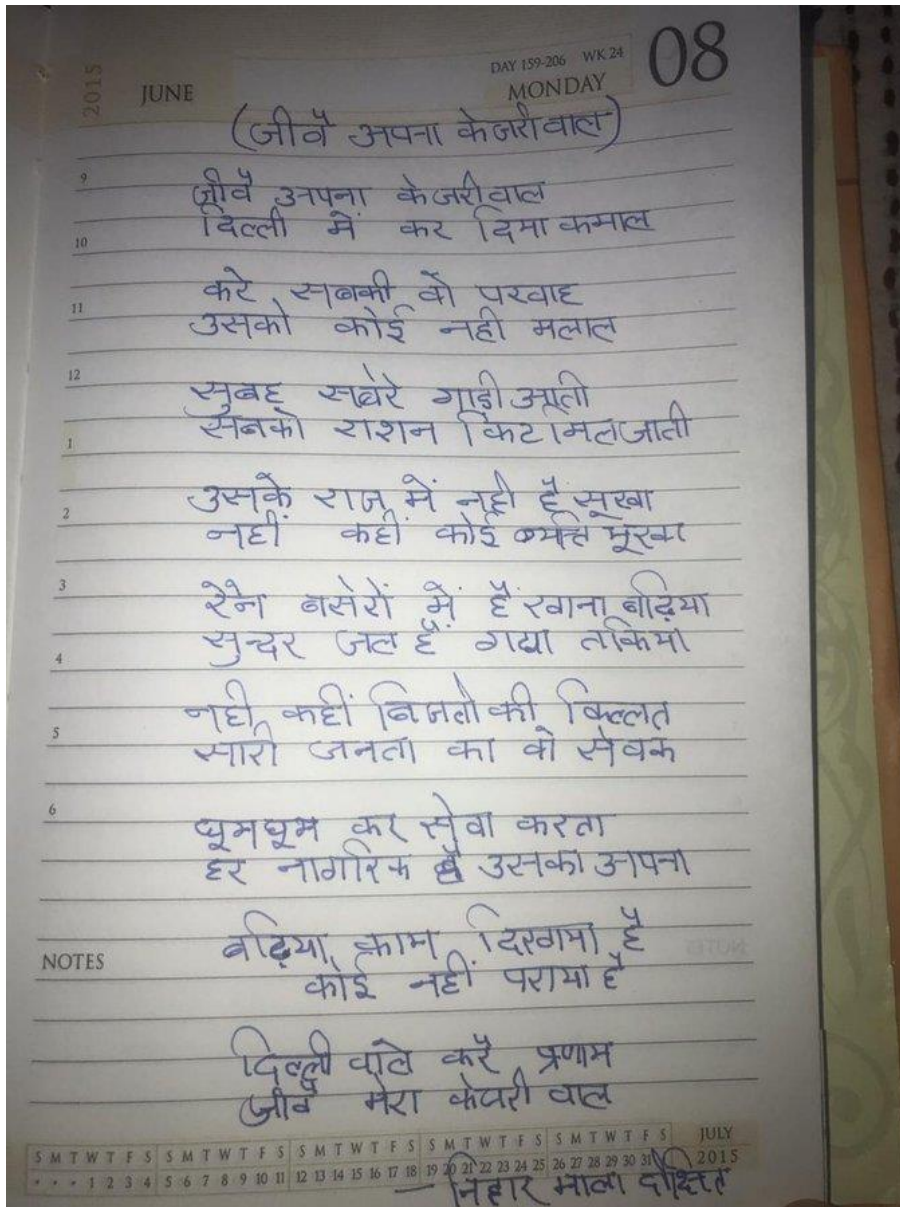 2015
JUNE
DAY 159-206 WK 24
MONDAY
08
(जीवै अपना केजरीवाल)
9
जीवै अपना केजरीवाल
दिल्ली में कर दिया कमाल
10
करे सबकी वो परवाह
11
उसको कोई नही मलाल
12
सुबह सवेरे गाडी आती
सबको राशन किट मिल जाती
1
उसके राज में नही है सूखा
2
नहीं कहीं कोई भूखा
3
रैन बसेरों में है खाना बढ़िया
सुन्दर जल है गद्दा तकिया
4
नही कहीं बिजली की किल्लत
5
सारी जनता का वो सेवक
6
घूमघूम कर सेवा करता
हर नागरिक है उसका अपना
बढ़िया काम दिखाया है
NOTES
कोई नहीं पराया है
दिल्ली वाले करै प्रणाम
जीवै मेरा केजरी वाल
S M T W T F S S M T W T F S S M T W T F S S M T W T F S S M T W T F S JULY
• • • 1 2 3 4 5 6 7 8 9 10 11 12 13 14 15 16 17 18 19 20 21 22 23 24 25 26 27 28 29 30 31 2015
— निहार माला दीक्षित